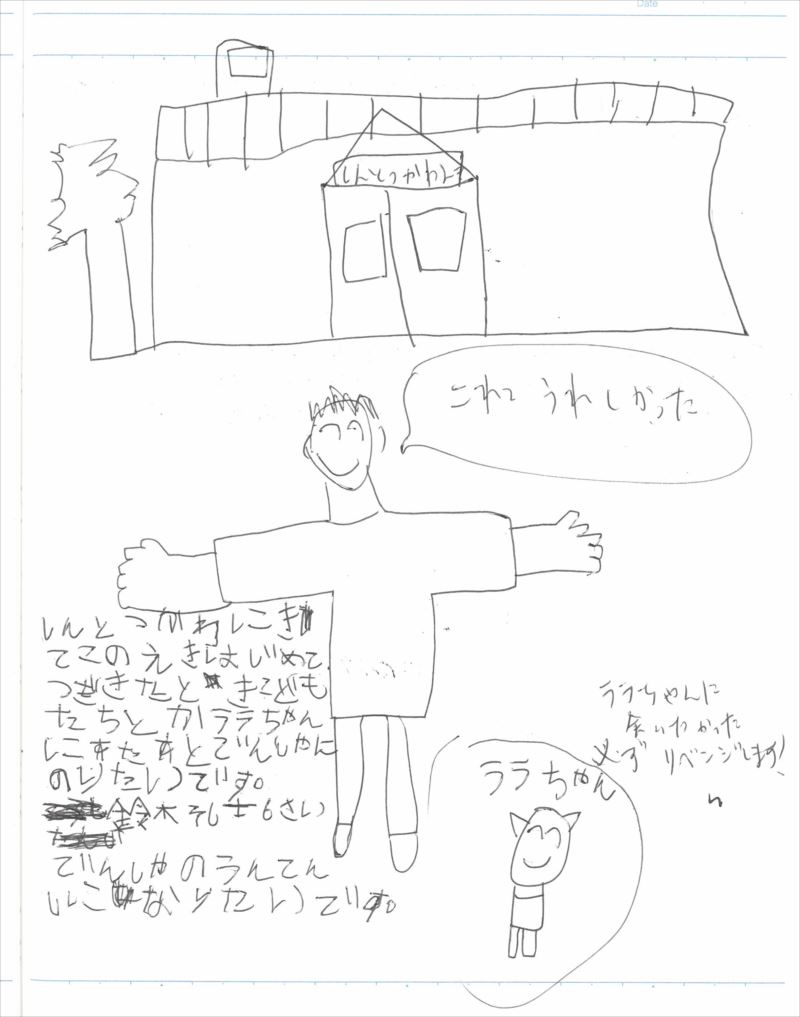 Date
しんとつかわえき
これて うれしかった
しんとつがわにこ
てこのえきはじめて
つぎきたときこども
たちとかララちゃん
にこ
とでんしゃに
のりたいです。
鈴木
6さい
でんしゃのうんてん
なりたいです。
ララちゃんに
会いたかった
必ず リベンジします!
ララちゃん